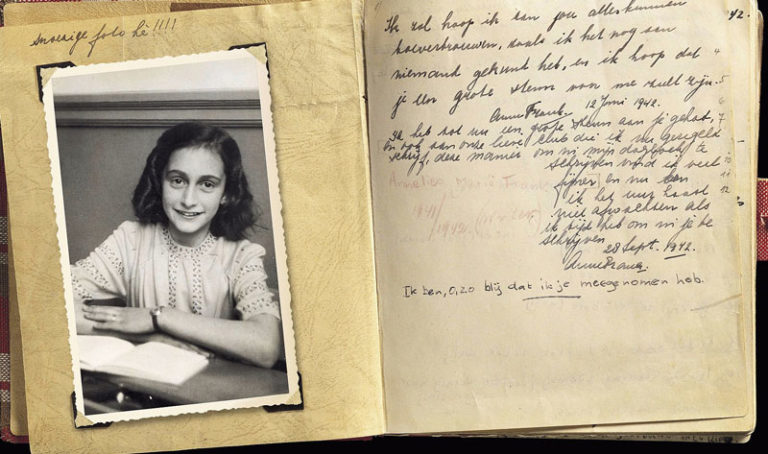 snoezige foto hè!!!!
42.
Ik zal hoop ik aan jou alles kunnen
toevertrouwen, zoals ik het nog aan
niemand gekund heb, en ik hoop dat
je een grote steun voor me zult zijn.
Anne Frank. 12 Juni 1942.
Ik heb tot nu een grote steun aan je gehad,
en ook aan onze lieve club die ik nu geregeld
schrijf, deze manier om in mijn dagboek te
schrijven vind ik veel
fijner en nu kan
ik het uur haast
niet afwachten als
ik tijd heb om in je te
schrijven.
28 Sept. 1942.
Anne Frank.
Annelies Marie Frank
1941/
1942.
Ik ben, o, zo blij dat ik je meegenomen heb.